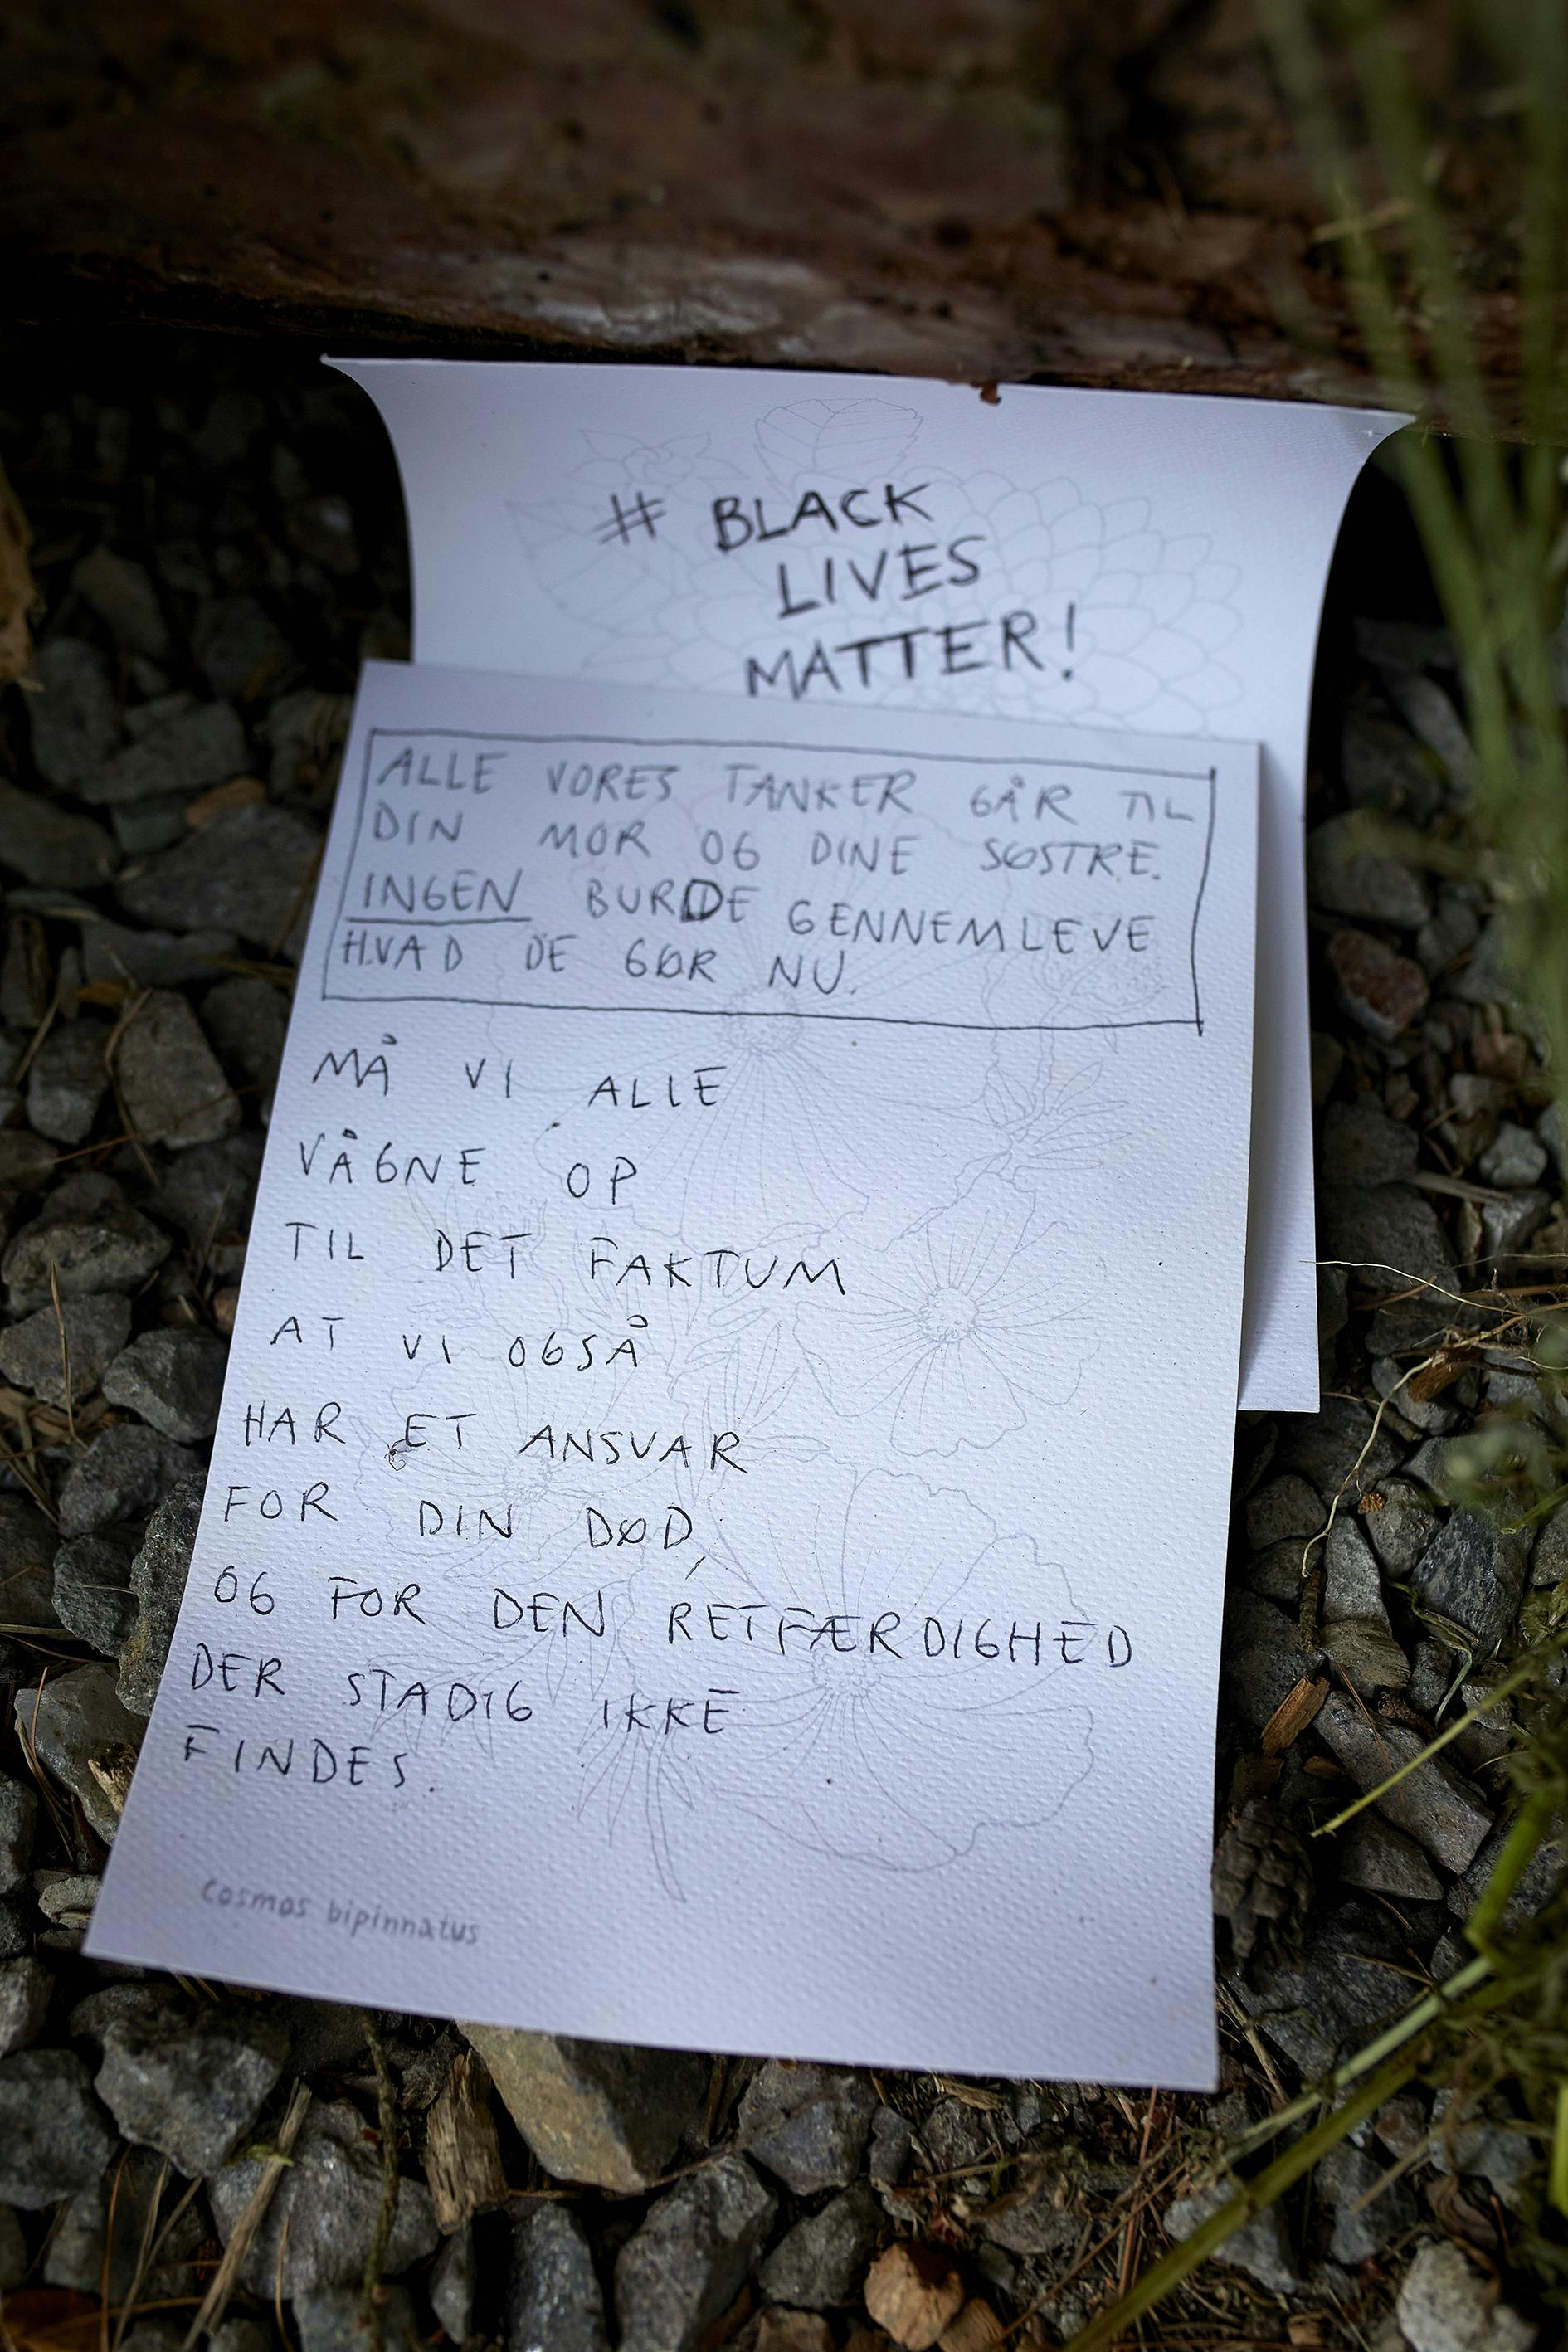 # BLACK
LIVES
MATTER!
ALLE VORES TANKER GÅR TIL
DIN MOR OG DINE SØSTRE.
INGEN BURDE GENNEMLEVE
HVAD DE GØR NU.
MÅ VI ALLE
VÅGNE OP
TIL DET FAKTUM
AT VI OGSÅ
HAR ET ANSVAR
FOR DIN DØD,
OG FOR DEN RETFÆRDIGHED
DER STADIG IKKE
FINDES.
cosmos bipinnatus